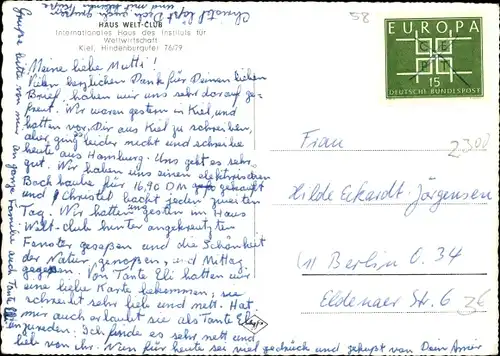 Christel läßt Dich auch grüßen
HAUS WELT-CLUB
Internationales Haus des Instituts für
Weltwirtschaft
Kiel, Hindenburgufer 76/79
Meine liebe Mutti!
Vielen herzlichen Dank für Deinen lieben
Brief, haben wir uns sehr darauf ge-
freut. Wir waren gestern in Kiel und
hatten vor, Dir aus Kiel zu schreiben,
aber ging leider nicht und schreibe
heute aus Hamburg. Uns geht es sehr
gut. Wir haben uns einen elektrischen
Backhaube für 16,90 DM gekauft
und Christel backt jeden zweiten
Tag. Wir hatten uns gestern im Haus
Welt-club hinter angekreuzten
Fenster gesessen und die Schönheit
der Natur genossen, und Mittag
gegessen. Von Tante Eli hatten wir
eine liebe Karte bekommen, sie
schreibt sehr lieb und nett. Hat
mir auch erlaubt sie als Tante Eli
anzureden. Ich finde es sehr nett und
lieb von ihr. Nun für heute sei viel gedrückt und geküsst von Dein
Grüße bitte von mir die ganze Familie auch Tante
58
EUROPA
CEPT
15
DEUTSCHE BUNDESPOST
Frau
Hilde Eckardt-Jörgensen
(1) Berlin O. 34
Eldenaer Str. 6